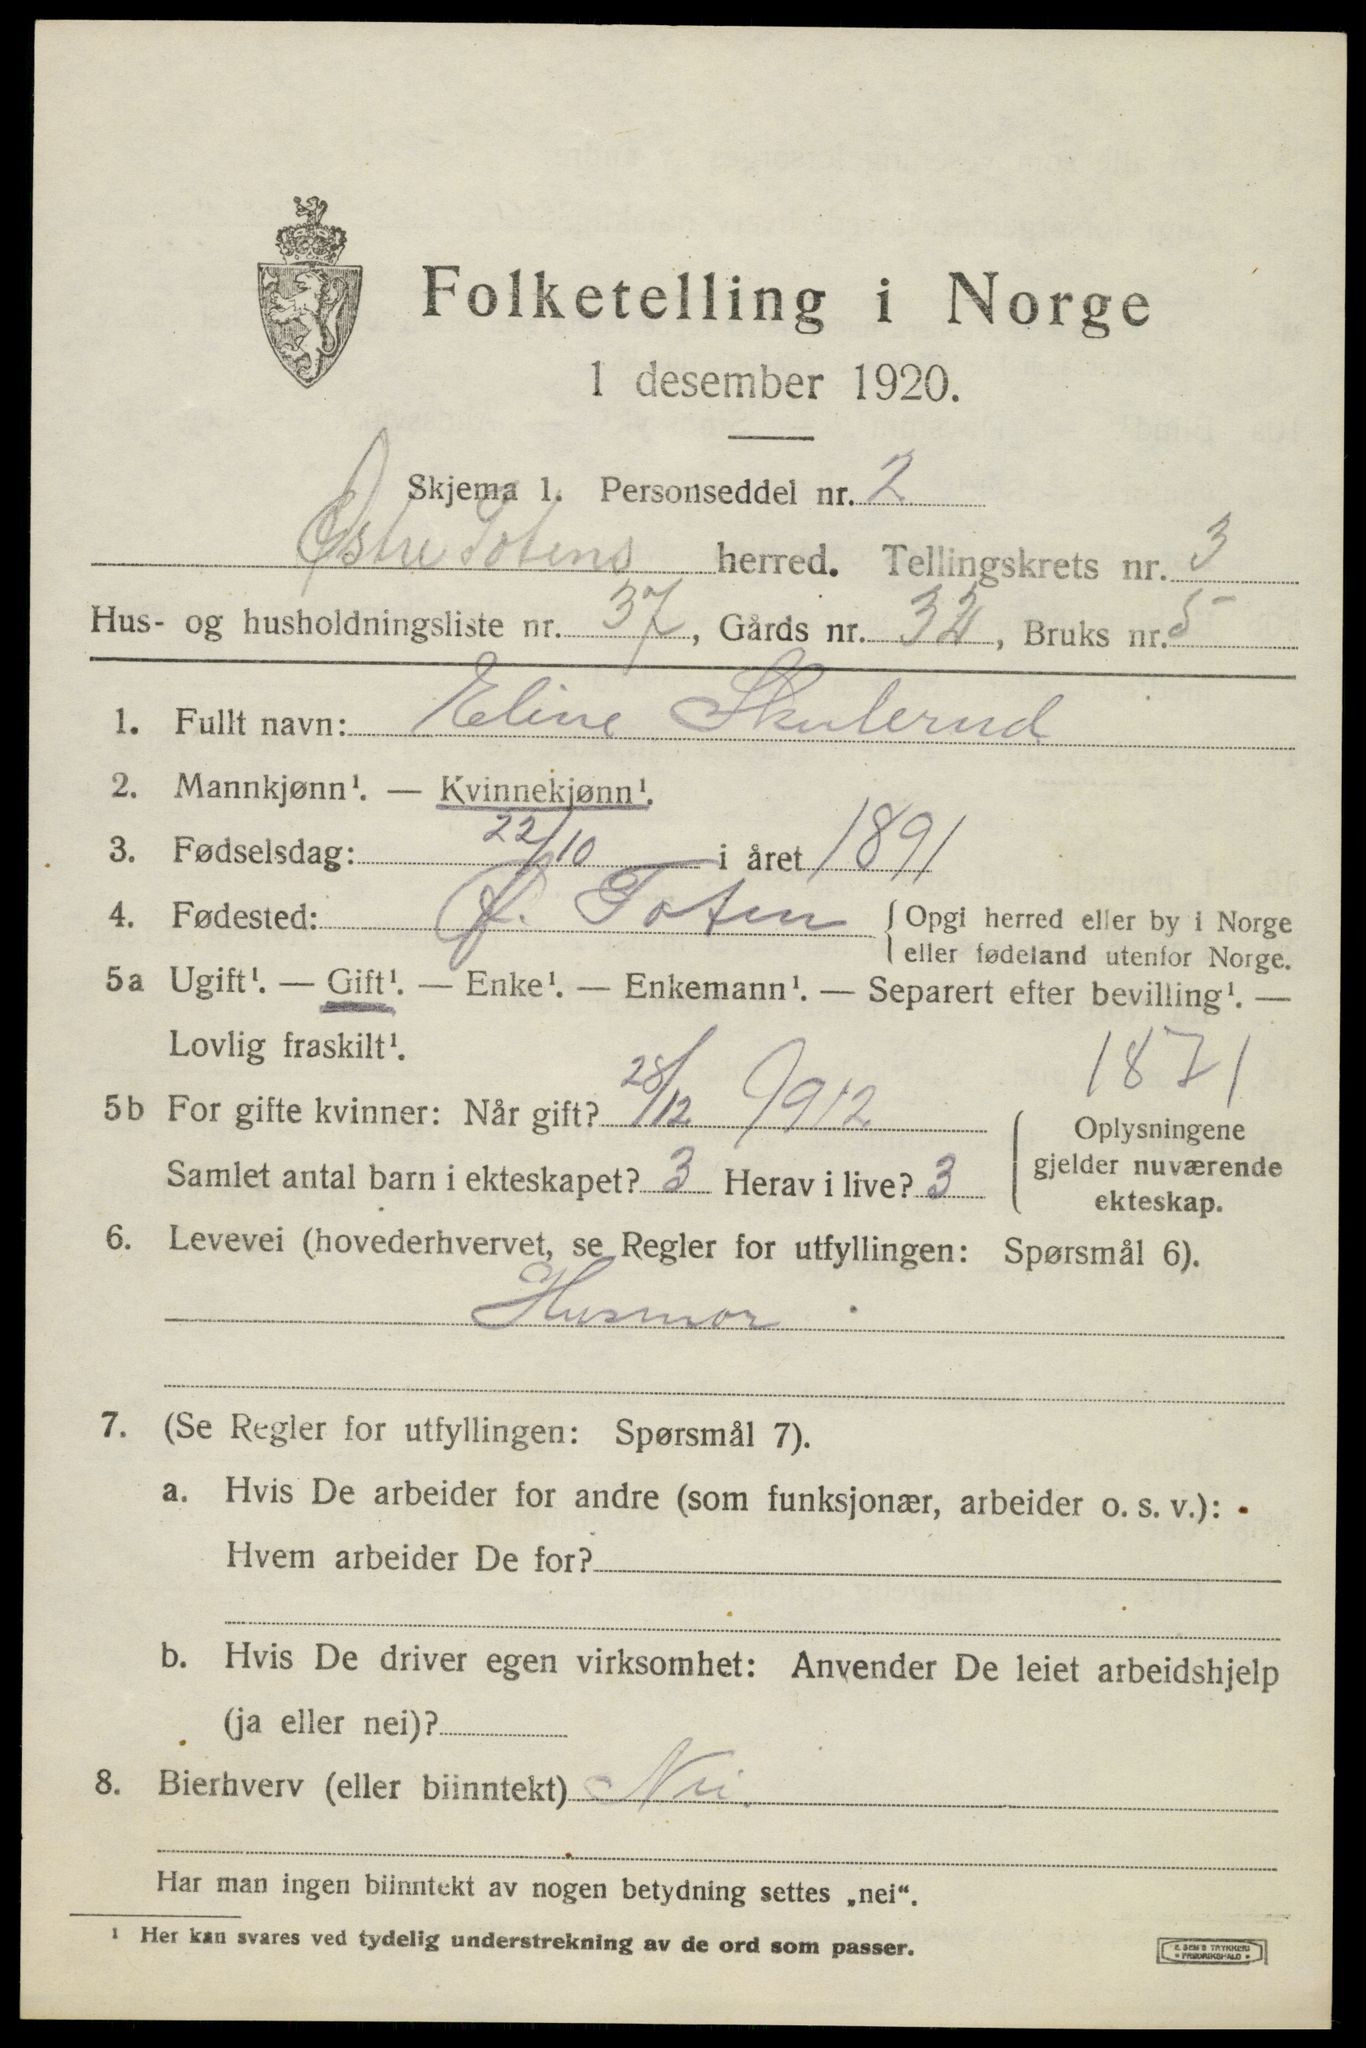 Folketelling i Norge
1 desember 1920.
Skjema 1. Personseddel nr. 2
Østre Totens herred. Tellingskrets nr. 3
Hus- og husholdningsliste nr. 37, Gårds nr. 32, Bruks nr. 5
1. Fullt navn: Eline Skulerud
2. Mannkjønn¹. — Kvinnekjønn¹.
3. Fødselsdag: 22/10 i året 1891
4. Fødested: Ø. Toten { Opgi herred eller by i Norge
eller fødeland utenfor Norge.
5a Ugift¹. — Gift¹. — Enke¹. — Enkemann¹. — Separert efter bevilling¹. —
Lovlig fraskilt¹.
1871
5b For gifte kvinner: Når gift? 28/12 1912
Samlet antal barn i ekteskapet? 3 Herav i live? 3
Oplysningene
gjelder nuværende
ekteskap.
6. Levevei (hovederhvervet, se Regler for utfyllingen: Spørsmål 6).
Husmor
7. (Se Regler for utfyllingen: Spørsmål 7).
a. Hvis De arbeider for andre (som funksjonær, arbeider o. s. v.):
Hvem arbeider De for?
b. Hvis De driver egen virksomhet: Anvender De leiet arbeidshjelp
(ja eller nei)?
8. Bierhverv (eller biinntekt) Nei.
Har man ingen biinntekt av nogen betydning settes „nei“.
¹ Her kan svares ved tydelig understrekning av de ord som passer.
E. SEM'S TRYKKERI
FREDRIKSHALD